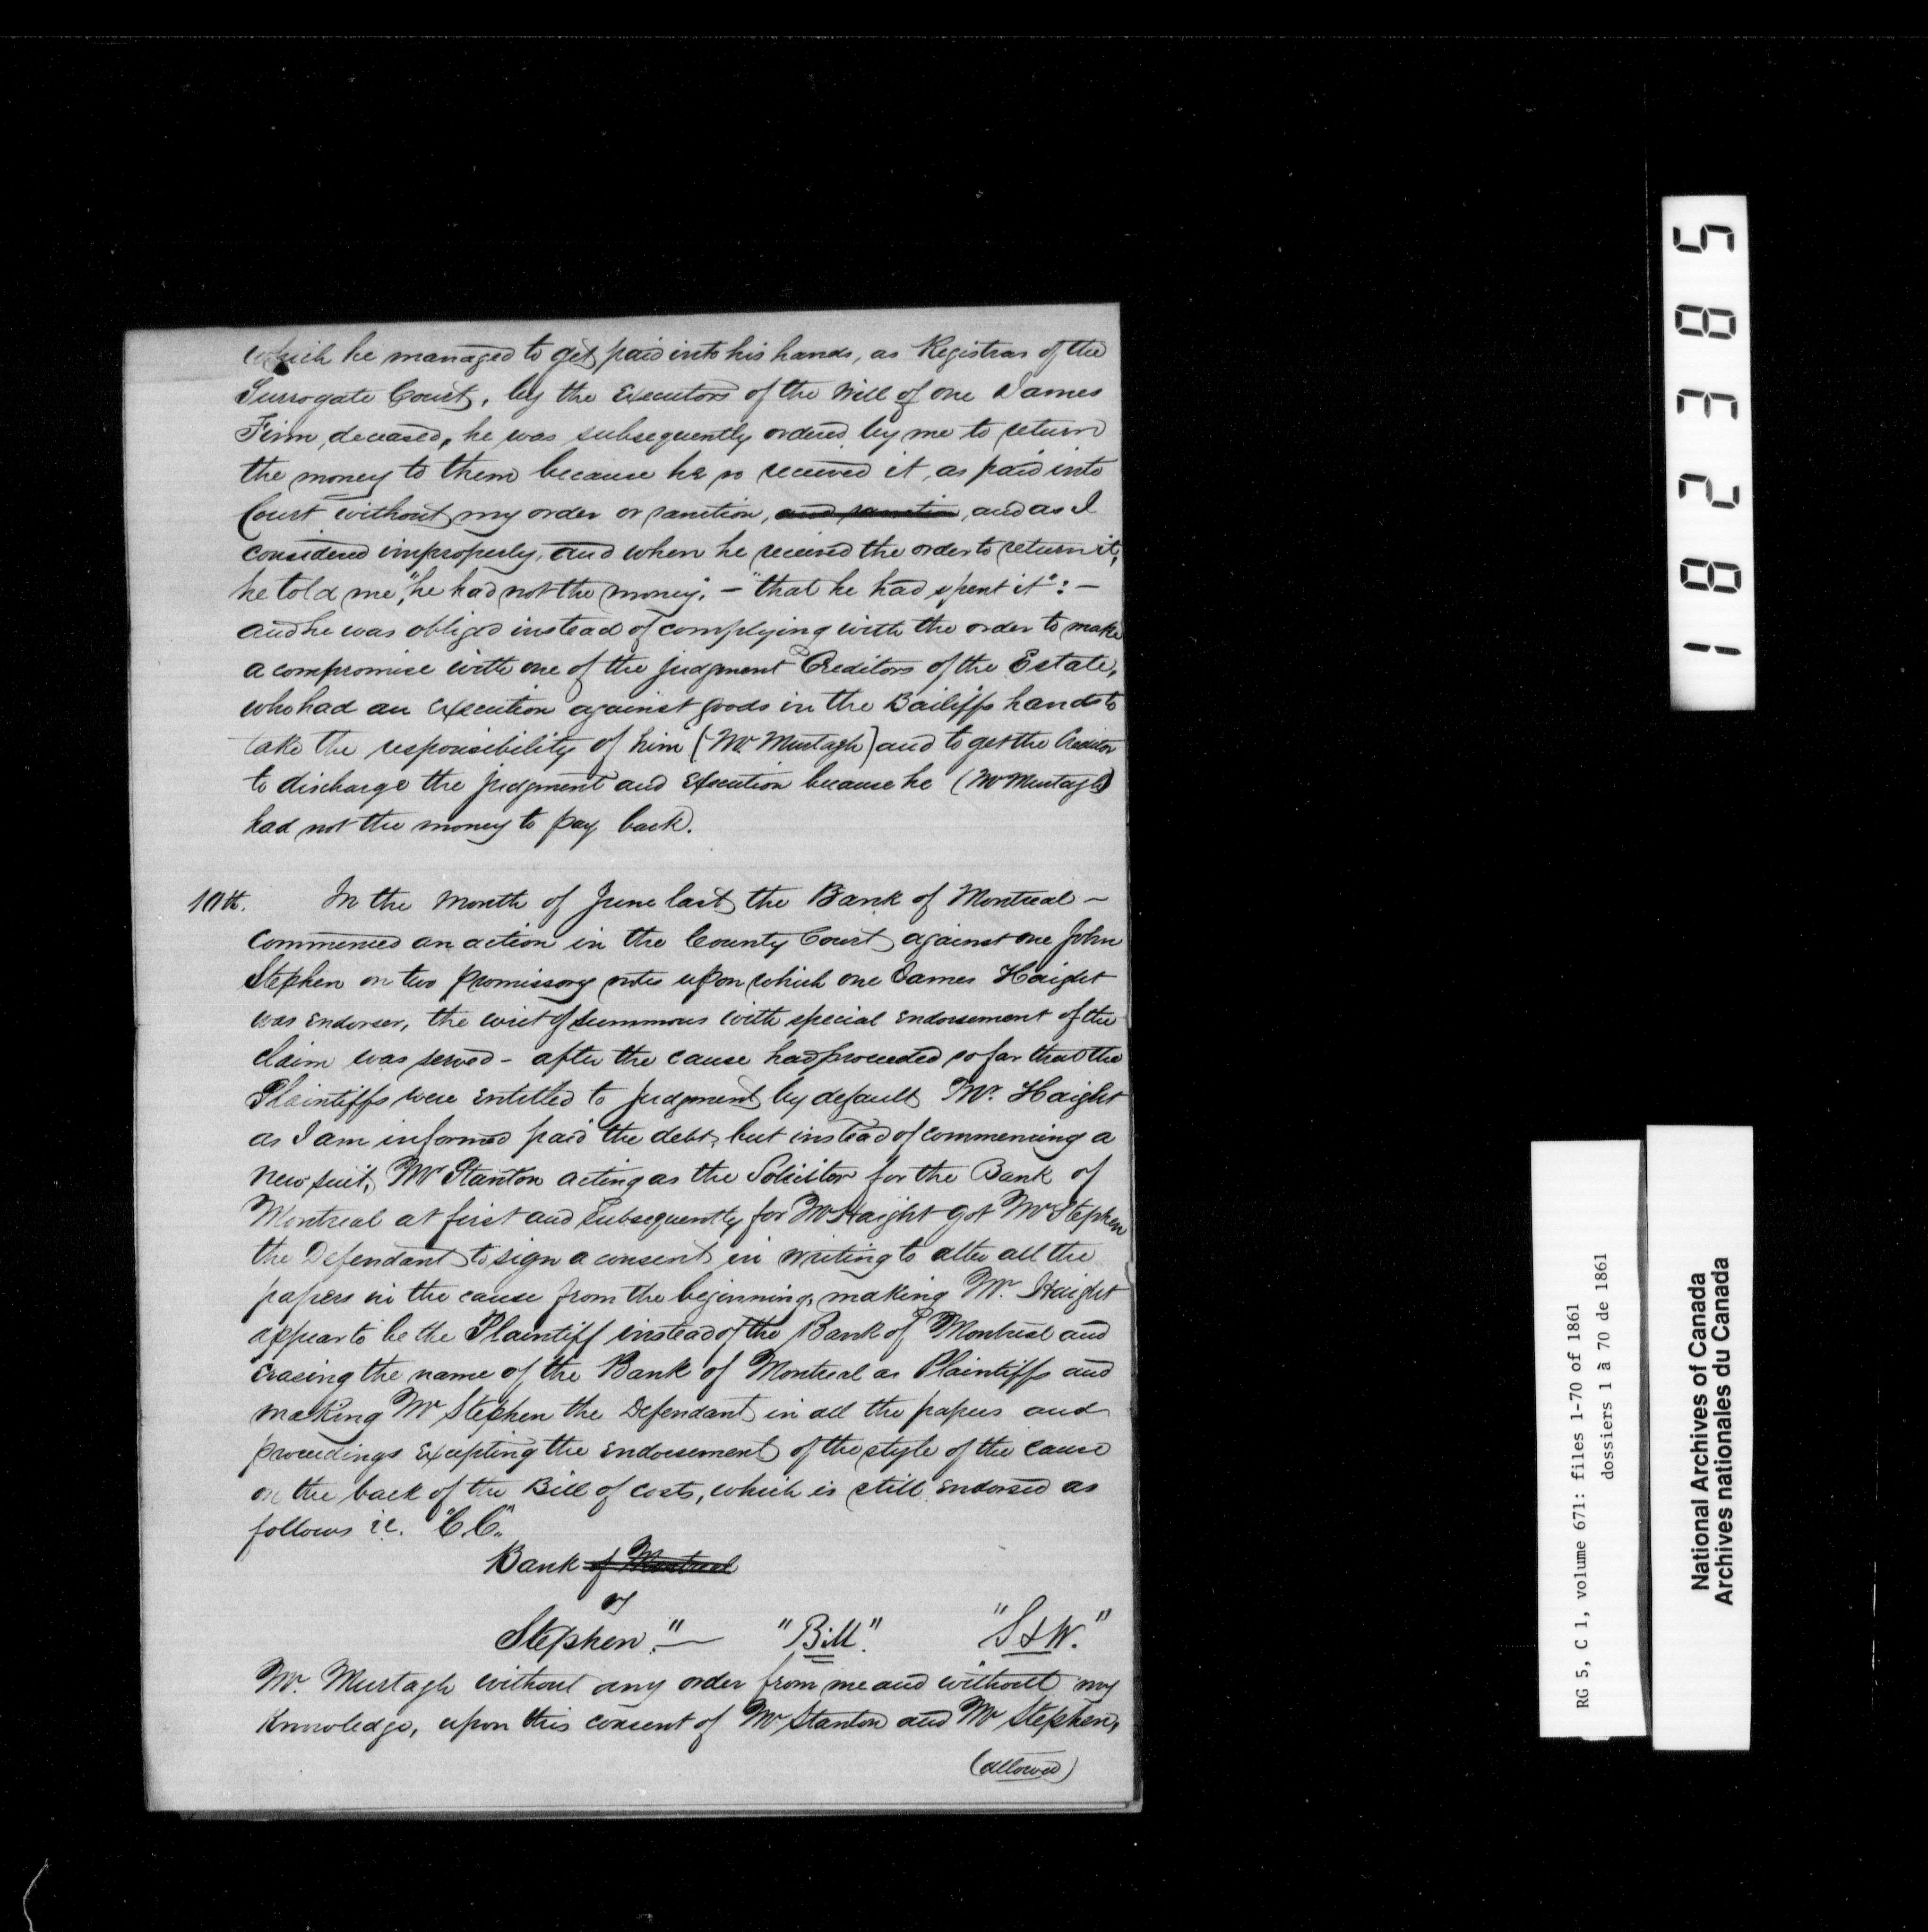 which he managed to get paid into his hands, as Registrar of the
Surrogate Court, by the Executors of the Will of one James
Finn, deceased, he was subsequently ordered by me to return
the money to them because he so received it, as paid into
Court without my order or sanction, and sanction, and as I
considered improperly, and when he received the order to return it,
he told me, "he had not the money." – "that he had spent it": –
and he was obliged instead of complying with the order to make
a compromise with one of the judgment Creditors of the Estate,
who had an execution against goods in the Bailiffs hands to
take the responsibility of him (Mr Murtagh) and to get the Creditor
to discharge the judgment and Execution because he (Mr Murtagh)
had not the money to pay back.
10th. In the Month of June last the Bank of Montreal –
commenced an action in the County Court against one John
Stephen on two promissory notes upon which one James Haight
was Endorser, the writ of summons with special endorsement of the
claim was served – after the cause had proceeded so far that the
Plaintiffs were entitled to judgment by default Mr. Haight
as I am informed paid the debt, but instead of commencing a
new suit, Mr Stanton acting as the Solicitor for the Bank of
Montreal at first and subsequently for Mr Haight got Mr Stephen
the Defendant to sign a consent in writing to alter all the
papers in the cause from the beginning, making Mr. Haight
appear to be the Plaintiff instead of the Bank of Montreal and
erasing the name of the Bank of Montreal as Plaintiffs and
making Mr Stephen the Defendant in all the papers and
proceedings Excepting the endorsement of the style of the cause
on the back of the Bill of costs, which is still endorsed as
follows i.e. "C.C.
Bank of Montreal
vs
Stephen." — "Bill". "S & W."
Mr. Murtagh without any order from me and without my
Knowledge, upon this consent of Mr Stanton and Mr Stephen,
(allowed)
182385
RG 5, C 1, volume 671: files 1-70 of 1861
dossiers 1 à 70 de 1861
National Archives of Canada
Archives nationales du Canada